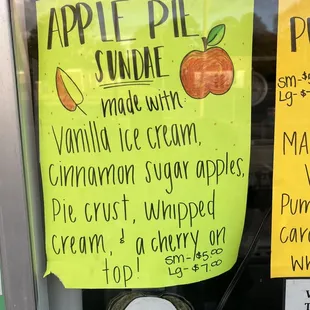 APPLE PIE
SUNDAE
made with
Vanilla ice cream,
cinnamon sugar apples,
Pie crust, whipped
cream, & a cherry on
top!
SM-$5.00
LG-$7.00
SM-$
Lg-$
MA
Pum
car
wh